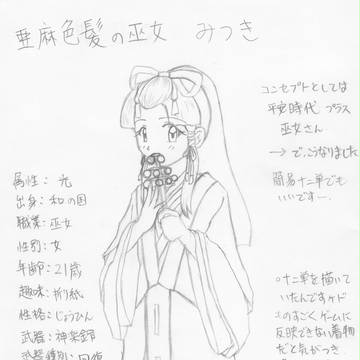 亜麻色髪の巫女　みつき
コンセプトとしては
平安時代 プラス
巫女さん
→ でこうなりました
簡易十二単でも
いいです…
属性： 光
出身： 和の国
職業： 巫女
性別： 女
年齢： 21歳
趣味： 折り紙
性格： じょうひん
武器： 神楽鈴
武器種別：
○十二単を描いて
いたんですケド
すごくゲームに
反映できない着物
だと気がつき